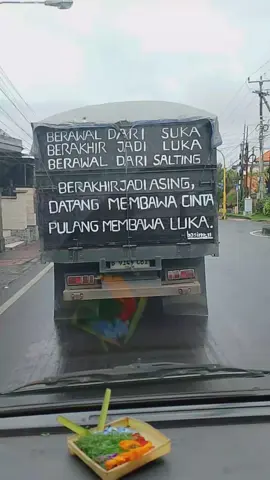 BERAWAL DARI SUKA
BERAKHIR JADI LUKA
BERAWAL DARI SALTING
BERAKHIR JADI ASING,
DATANG MEMBAWA CINTA
PULANG MEMBAWA LUKA.